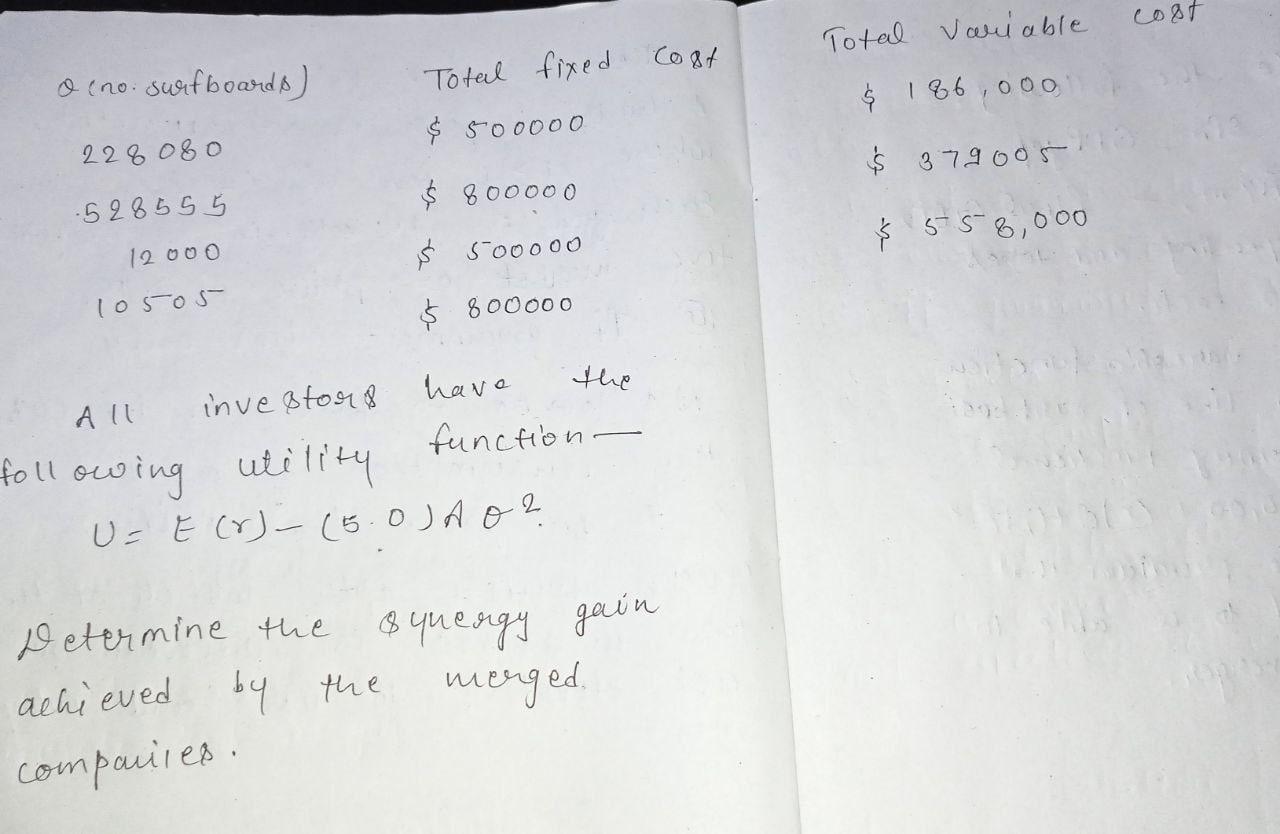 Q (no. surfboards) Total fixed Cost Total variable cost
228080 $ 500000 $ 186,000
528555 $ 800000 $ 379005
12000 $ 500000 $ 558,000
10505 $ 800000
All investors have the
following utility function—
U = E (r) – (5.0) A σ2
Determine the synergy gain
achieved by the merged
companies.